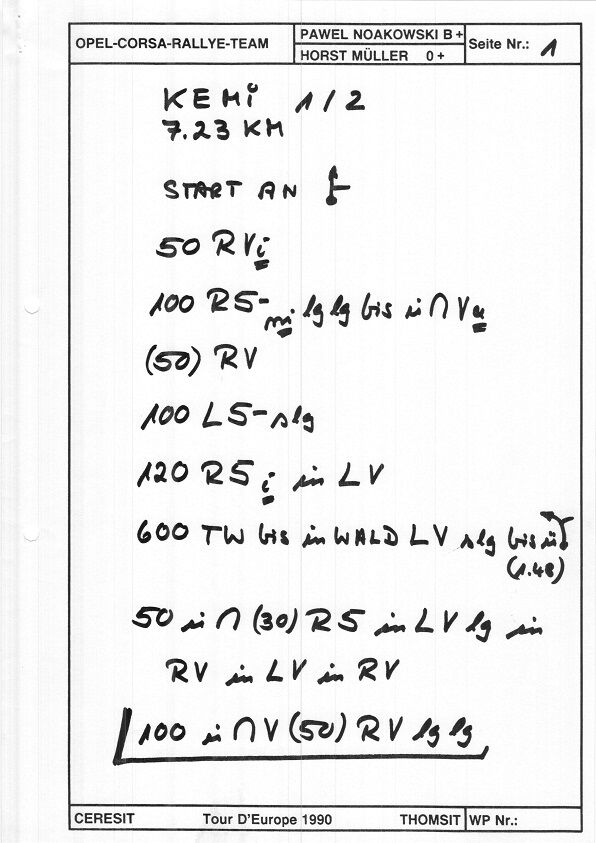 OPEL-CORSA-RALLYE-TEAM
PAWEL NOAKOWSKI B+
HORST MÜLLER 0+
Seite Nr.: 1
KEMi 1/2
7.23 KM
START AN
50 RVi
100 R5-mi lg lg bis ü ∩ Vu
(50) RV
100 L5-slg
120 R5i in LV
600 TW bis in WALD LV slg bis ü
(1.48)
50 ü ∩ (30) R5 in LV lg in
RV in LV in RV
100 ü ∩ V (50) RV lg lg
CERESIT Tour D'Europe 1990 THOMSIT WP Nr.: